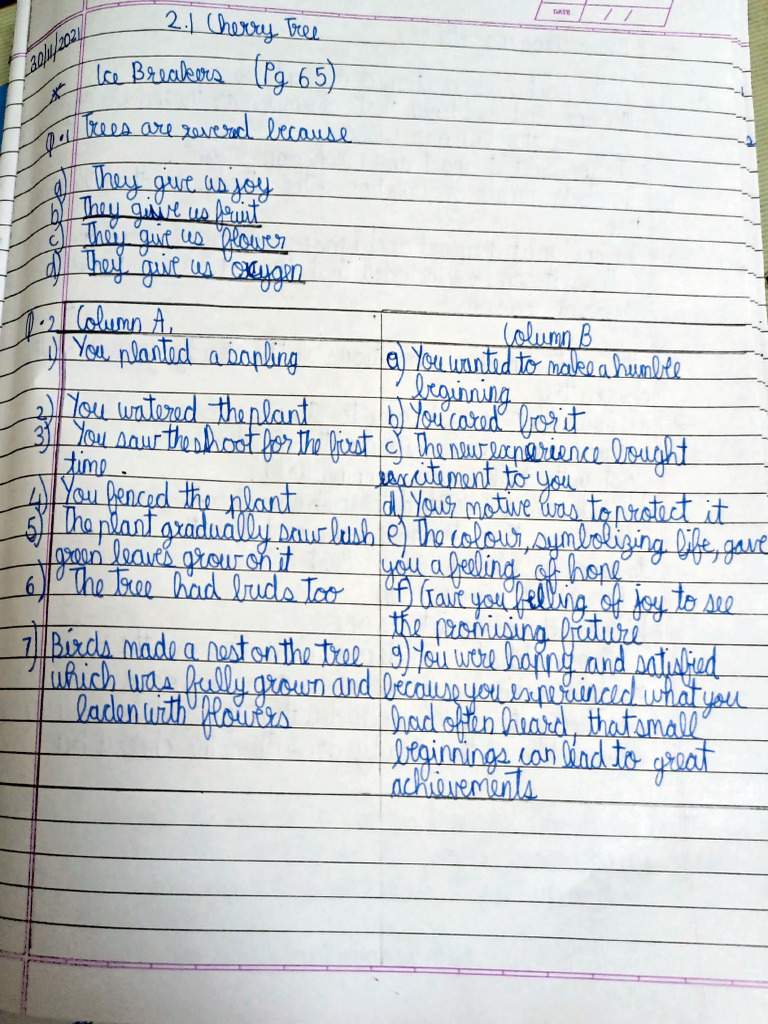 DATE / /
30/11/2021
2.1 Cherry Tree
* Ice Breakers (Pg 65)
Q.1 Trees are revered because
a) They give us joy
b) They give us fruit
c) They give us flower
d) They give us oxygen
Q.2 Column A. Column B
1) You planted a sapling a) You wanted to make a humble
beginning
2) You watered the plant b) You cared for it
3) You saw the shoot for the first c) The new experience bought
time. excitement to you
4) You fenced the plant d) Your motive was to protect it
5) The plant gradually saw lush e) The colour, symbolizing life, gave
green leaves grow on it you a feeling of hope
6) The tree had buds too f) Gave you felling of joy to see
the promising future
7) Birds made a nest on the tree g) You were happy and satisfied
which was fully grown and because you experienced what you
laden with flowers had often heard, that small
beginnings can lead to great
achievements